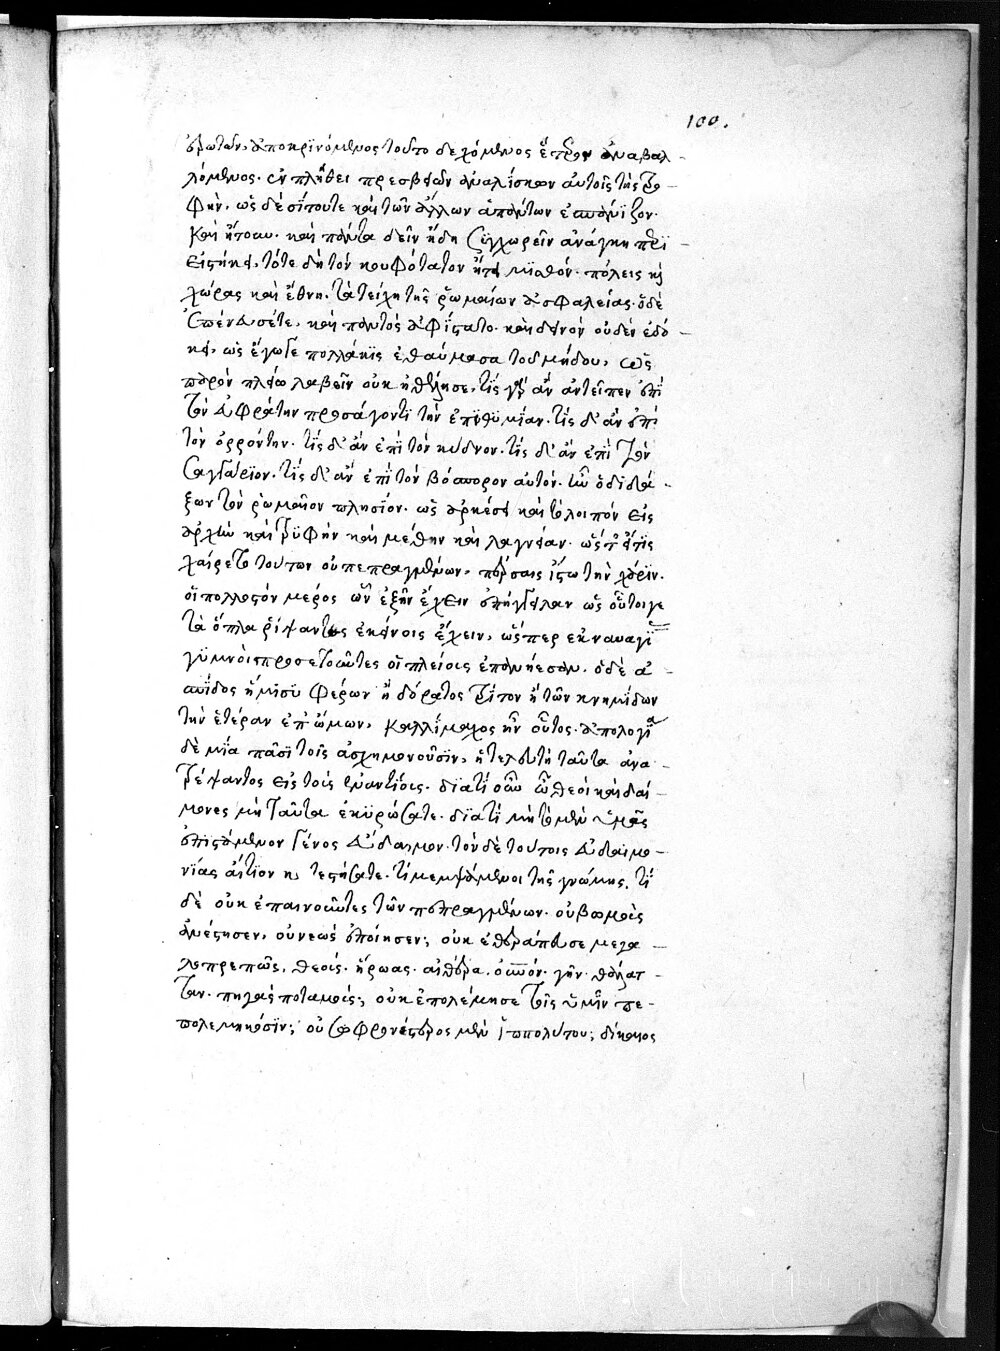 100.
ἐρωτῶν, ἀποκρινόμενος τοῦτο δεχόμενος ἕτερον ἀναβαλ-
λόμενος. ἐν πλήθει πρεσβειῶν ἀναλίσκων αὐτοῖς τὴν τρο-
φήν, ὡς δὲ σίτου τε καὶ τῶν ἄλλων ἁπάντων ἐσπάνιζον.
καὶ ᾔτουν. καὶ πάντα δεῖν ἤδη συγχωρεῖν ἀνάγκη περι-
ειστήκει, τότε δὴ τὸν κουφότατον ᾔτει μισθόν. πόλεις καὶ
χώρας καὶ ἔθνη. τὰ τείχη τῆς ῥωμαίων ἀσφαλείας. ὁ δὲ
ἐπένευσέ τε, καὶ παντὸς ἀφίστατο. καὶ δεινὸν οὐδὲν ἐδό-
κει, ὡς ἔγωγε πολλάκις ἐθαύμασα τοῦ μήδου, ὡς
παρὸν πλείω λαβεῖν οὐκ ἠθέλησε, τίς γὰρ ἂν ἀντεῖπεν ἐπὶ
τὸν εὐφράτην προσάγοντι τὴν ἐπιθυμίαν. τίς δ' ἂν ἐπὶ
τὸν ὀρρόντην. τίς δ' ἂν ἐπὶ τὸν κύδνον. τίς δ' ἂν ἐπὶ τὸν
σαγγάριον. τίς δ' ἂν ἐπὶ τὸν βόσπορον αὐτόν. ἦν ὁ διδά-
ξων τὸν ῥωμαῖον πλησίον. ὡς ἀρκέσει καὶ τὸ λοιπὸν εἰς
ἀρχὴν καὶ τρυφὴν καὶ μέθην καὶ λαγνείαν. ὥστ' εἴ τις
χαίρει τούτων οὐ πεπραγμένων, πέρσαις ἴστω τὴν χάριν.
οἳ πολλοστὸν μέρος ὧν ἐξῆν ἔχειν ἐπήγγειλαν ὡς οὗτοί γε
τὰ ὅπλα ῥίψαντες ἐκείνοις ἔχειν, ὥσπερ ἐκ ναυαγί
γυμνοὶ προσετοῦντες οἱ πλείους ἐπανῄεσαν. ὁ δὲ ἀ-
σπίδος ἥμισυ φέρων ἢ δόρατος τρίτον ἢ τῶν κνημίδων
τὴν ἑτέραν ἐπ' ὤμων, καλλίμαχος ἦν οὗτος. ἀπολογία
δὲ μία πᾶσι τοῖς ἀσχημονοῦσιν, ἡ τελευτὴ ταῦτα ἀνα-
τρέψαντος εἰς τοὺς ἐναντίους. διατί οὖν ὦ θεοὶ καὶ δαί-
μονες μὴ ταῦτα ἐκυρώσατε. διατί μὴ τὸ μὲν ὑμᾶς
ἐπιστάμενον γένος εὔδαιμον. τὸν δὲ τούτοις εὐδαιμο-
νίας αἴτιον κατεστήσατε. τί μεμψάμενοι τῆς γνώμης. τί
δὲ οὐκ ἐπαινοῦντες τῶν πεπραγμένων. οὐ βωμοὺς
ἀνέστησεν, οὐ νεὼς ἐποίησεν; οὐκ ἐθεράπευσε μεγα-
λοπρεπῶς, θεοὺς. ἥρωας. αἰθέρα. οὐρανόν. γῆν. θάλατ-
ταν. πηγὰς ποταμούς; οὐκ ἐπολέμησε τοῖς ὑμῖν πε-
πολεμηκόσιν; οὐ σωφρονέστερος μὲν ἱππολύτου; δίκαιος